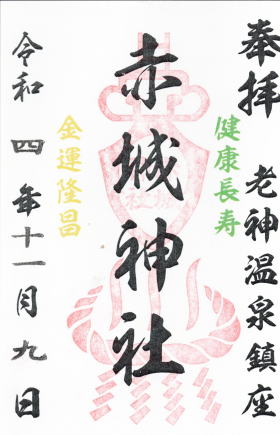 奉拝 老神温泉鎮座
健康長寿
赤城神社
金運隆昌
令和四年十一月九日